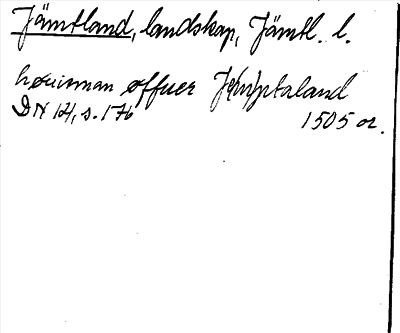 Jämtland, landskap, Jämtl. l.
høuisman offuer Je(m)ptaland
DN 14, s. 176
1505 or.